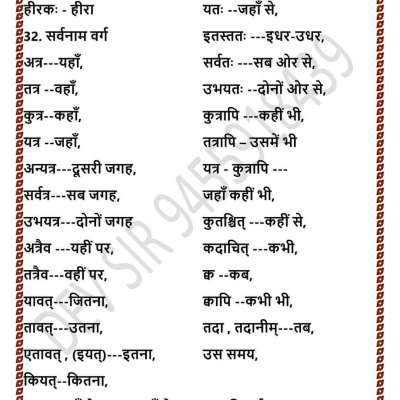 हीरकः - हीरा
32. सर्वनाम वर्ग
अत्र---यहाँ,
तत्र --वहाँ,
कुत्र--कहाँ,
यत्र --जहाँ,
अन्यत्र---दूसरी जगह,
सर्वत्र---सब जगह,
उभयत्र---दोनों जगह
अत्रैव ---यहीं पर,
तत्रैव---वहीं पर,
यावत्---जितना,
तावत्---उतना,
एतावत् , (इयत्)---इतना,
कियत्--कितना,
यतः --जहाँ से,
इतस्ततः ---इधर-उधर,
सर्वतः ---सब ओर से,
उभयतः --दोनों ओर से,
कुत्रापि ---कहीं भी,
तत्रापि – उसमें भी
यत्र - कुत्रापि ---
जहाँ कहीं भी,
कुतश्चित् ---कहीं से,
कदाचित् ---कभी,
क्व --कब,
क्वापि --कभी भी,
तदा , तदानीम्---तब,
उस समय,
DEV SIR 9455918439